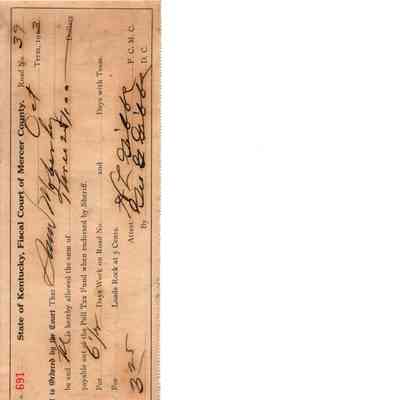 No. 691 State of Kentucky, Fiscal Court of Mercer County. Road No. 39
It is Ordered by the Court That Sam Moberly Oct Term, 19
be and is hereby allowed the sum of Three 25/100 Dollars
payable out of the Poll Tax Fund when endorsed by Sheriff.
For 6 1/2 Days Work on Road No. and Days with Team.
For Loads Rock at 5 Cents.
Attest: F. C. M. C.
325 By D. C.